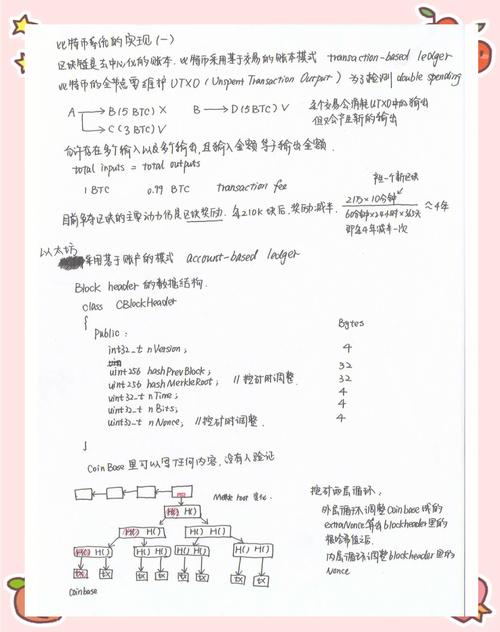 比特币系统的实现（一）
区块链是去中心化的账本. 比特币采用基于交易的账本模式 transaction-based ledger
比特币的全节点需要维护 UTXO (Unspent Transaction Output) 为了检测 double spending
A → B (5 BTC) X B → D (5 BTC) V
→ C (3 BTC) V
每个交易会消耗UTXO中的输出
但又会产生新的输出
允许存在多个输入以及多个输出, 且输入金额等于输出金额.
total inputs = total outputs
1 BTC 0.99 BTC transaction fee
挖一个新区块
目前争夺区块的主要动力仍是区块奖励. 每210k块后, 奖励减半.
21万×10分钟
60分钟×24小时×365天
≈4年
即每4年减半一次
以太坊
采用基于账户的模式 account-based ledger
Block header 的数据结构.
class CBlockHeader
{
Public: Bytes
int32_t nVersion; 4
uint256 hashPrevBlock; 32
uint256 hashMerkleRoot; //挖矿时调整. 32
uint32_t nTime; 4
uint32_t nBits; 4
uint32_t nNonce; //挖矿时调整. 4
}
CoinBase 里可以写任何内容, 没有人验证
Merkle root
H() H()
H() H() H() H()
H() H() H() H() H() H() H() H()
tx tx tx tx tx tx tx tx
Coinbase
挖矿两层循环,
外层循环调整Coinbase域的
extraNonce算出blockheader里的
根哈希值后,
内层循环调整blockheader里的
Nonce